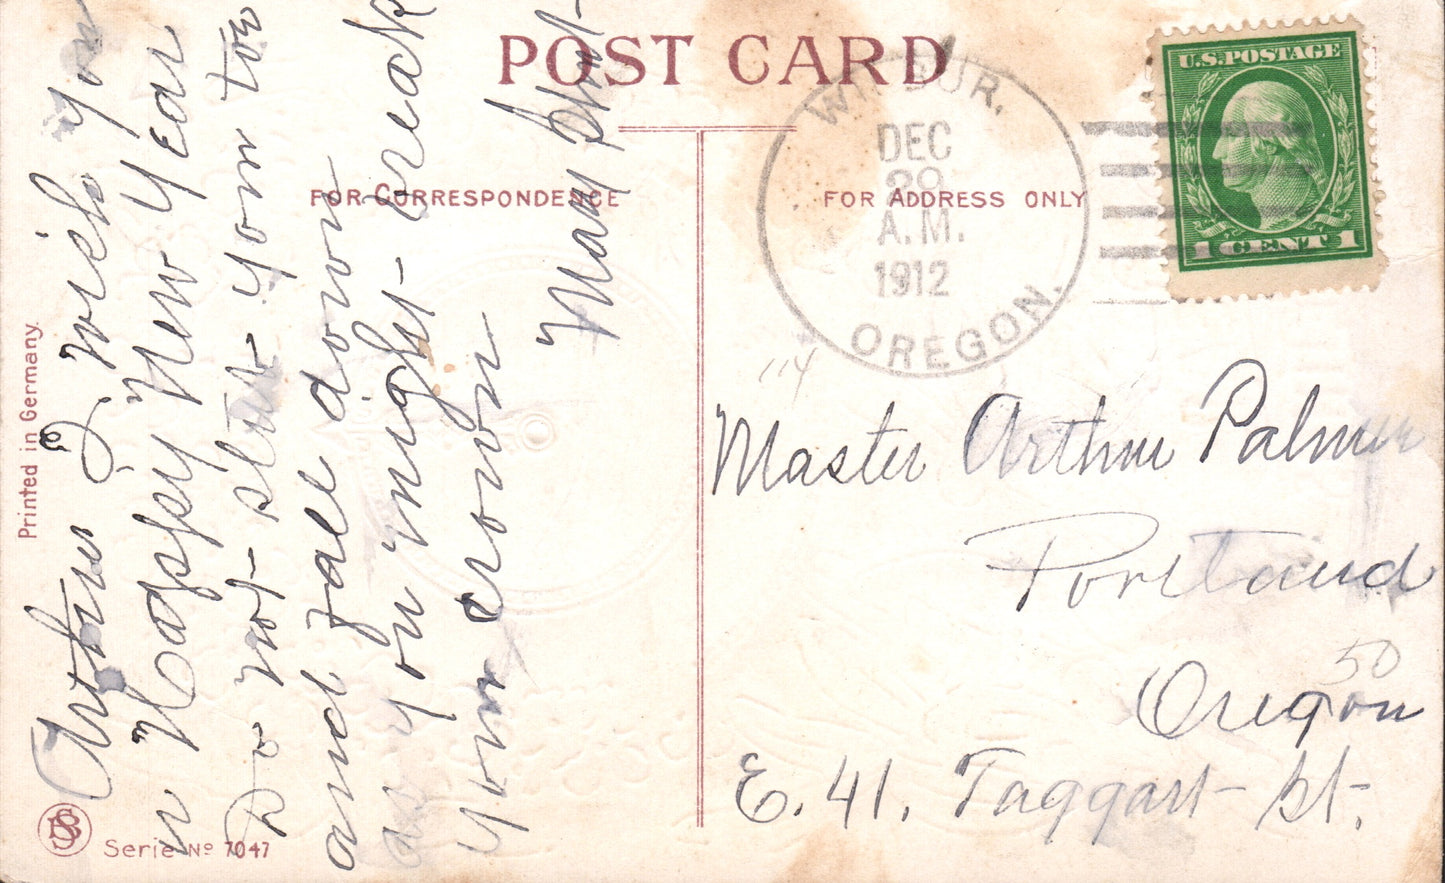 POST CARD
FOR CORRESPONDENCE
FOR ADDRESS ONLY
Printed in Germany.
Arthur I wish you
a Happy New Year
Do not stub your toe
and fall down
as you might break
your crown
May
WILBUR,
DEC
A.M.
1912
OREGON.
U.S. POSTAGE
1 CENT 1
114
Master Arthur Palmer
Portland
50
Oregon
E. 41. Taggart St.
Serie No 7047